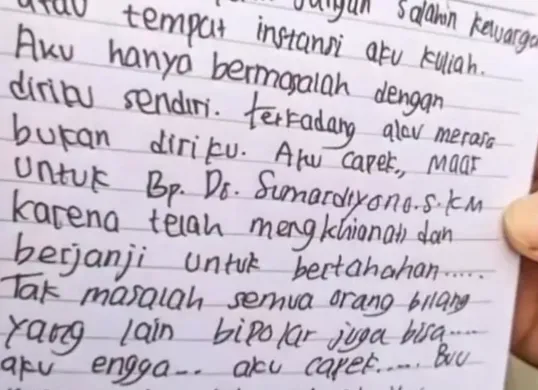 atau tempat instansi aku kuliah. jangan salahin keluarga
Aku hanya bermasalah dengan
diriku sendiri. terkadang aku merasa
bukan diriku. Aku capek,, maaf
untuk Bp. Ds. Sumardiyono.S.KM
karena telah mengkhianati dan
berjanji untuk bertahahan.....
Tak masalah semua orang bilang
yang lain bipolar juga bisa....
aku engga... aku capek..... Buu